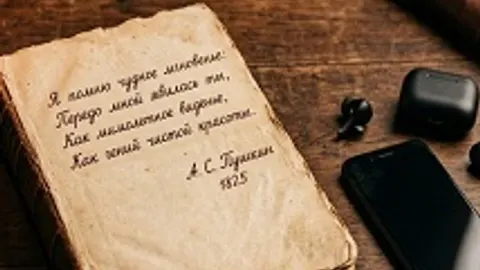 Я помню чудное мгновенье:
Передо мной явилась ты,
Как мимолетное виденье,
Как гений чистой красоты.
А. С. Пушкин
1825